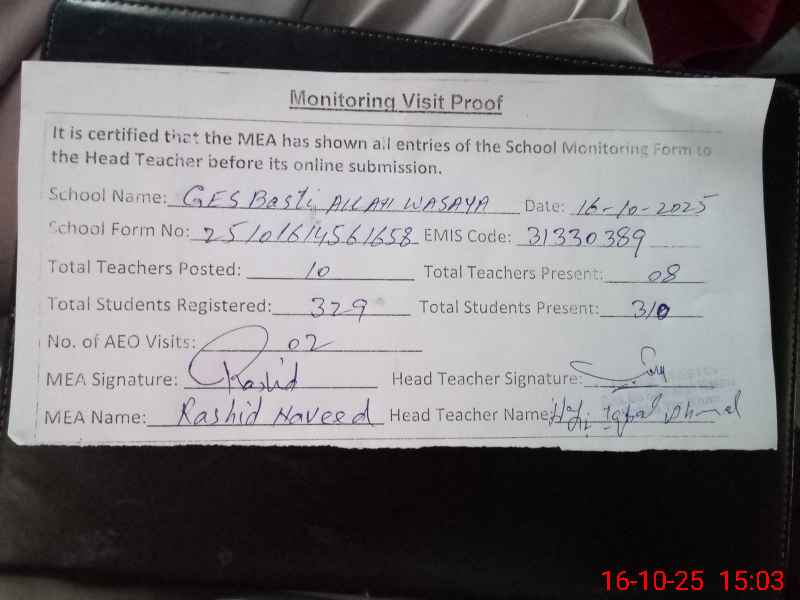 Monitoring Visit Proof
It is certified that the MEA has shown all entries of the School Monitoring Form to
the Head Teacher before its online submission.
School Name: GES Basti ALLAH WASAYA Date: 16-10-2025
School Form No: 25101614561658 EMIS Code: 31330389
Total Teachers Posted: 10 Total Teachers Present: 08
Total Students Registered: 329 Total Students Present: 310
No. of AEO Visits: 02
MEA Signature: Rashid Head Teacher Signature:
MEA Name: Rashid Naveed Head Teacher Name: Iqbal
16-10-25 15:03